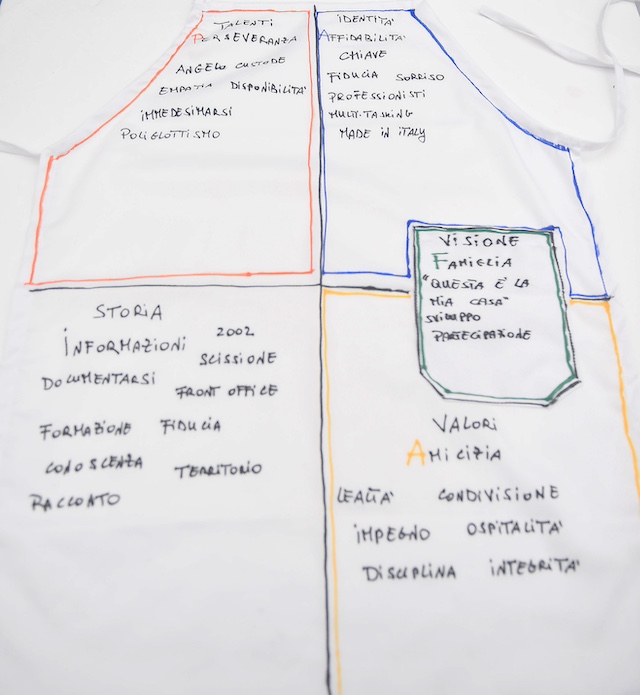 TALENTI
PERSEVERANZA
ANGELO CUSTODE
EMPATIA DISPONIBILITA'
IMMEDESIMARSI
POLIGLOTTISMO
IDENTITA'
AFFIDABILITA'
CHIAVE
FIDUCIA SORRISO
PROFESSIONISTI
MULTI-TASKING
MADE IN ITALY
VISIONE
FAMIGLIA
"QUESTA E' LA
MIA CASA"
SVILUPPO
PARTECIPAZIONE
STORIA
INFORMAZIONI 2002
SCISSIONE
DOCUMENTARSI FRONT OFFICE
FORMAZIONE FIDUCIA
CONOSCENZA TERRITORIO
RACCONTO
VALORI
AMICIZIA
LEALTA' CONDIVISIONE
IMPEGNO OSPITALITA'
DISCIPLINA INTEGRITA'